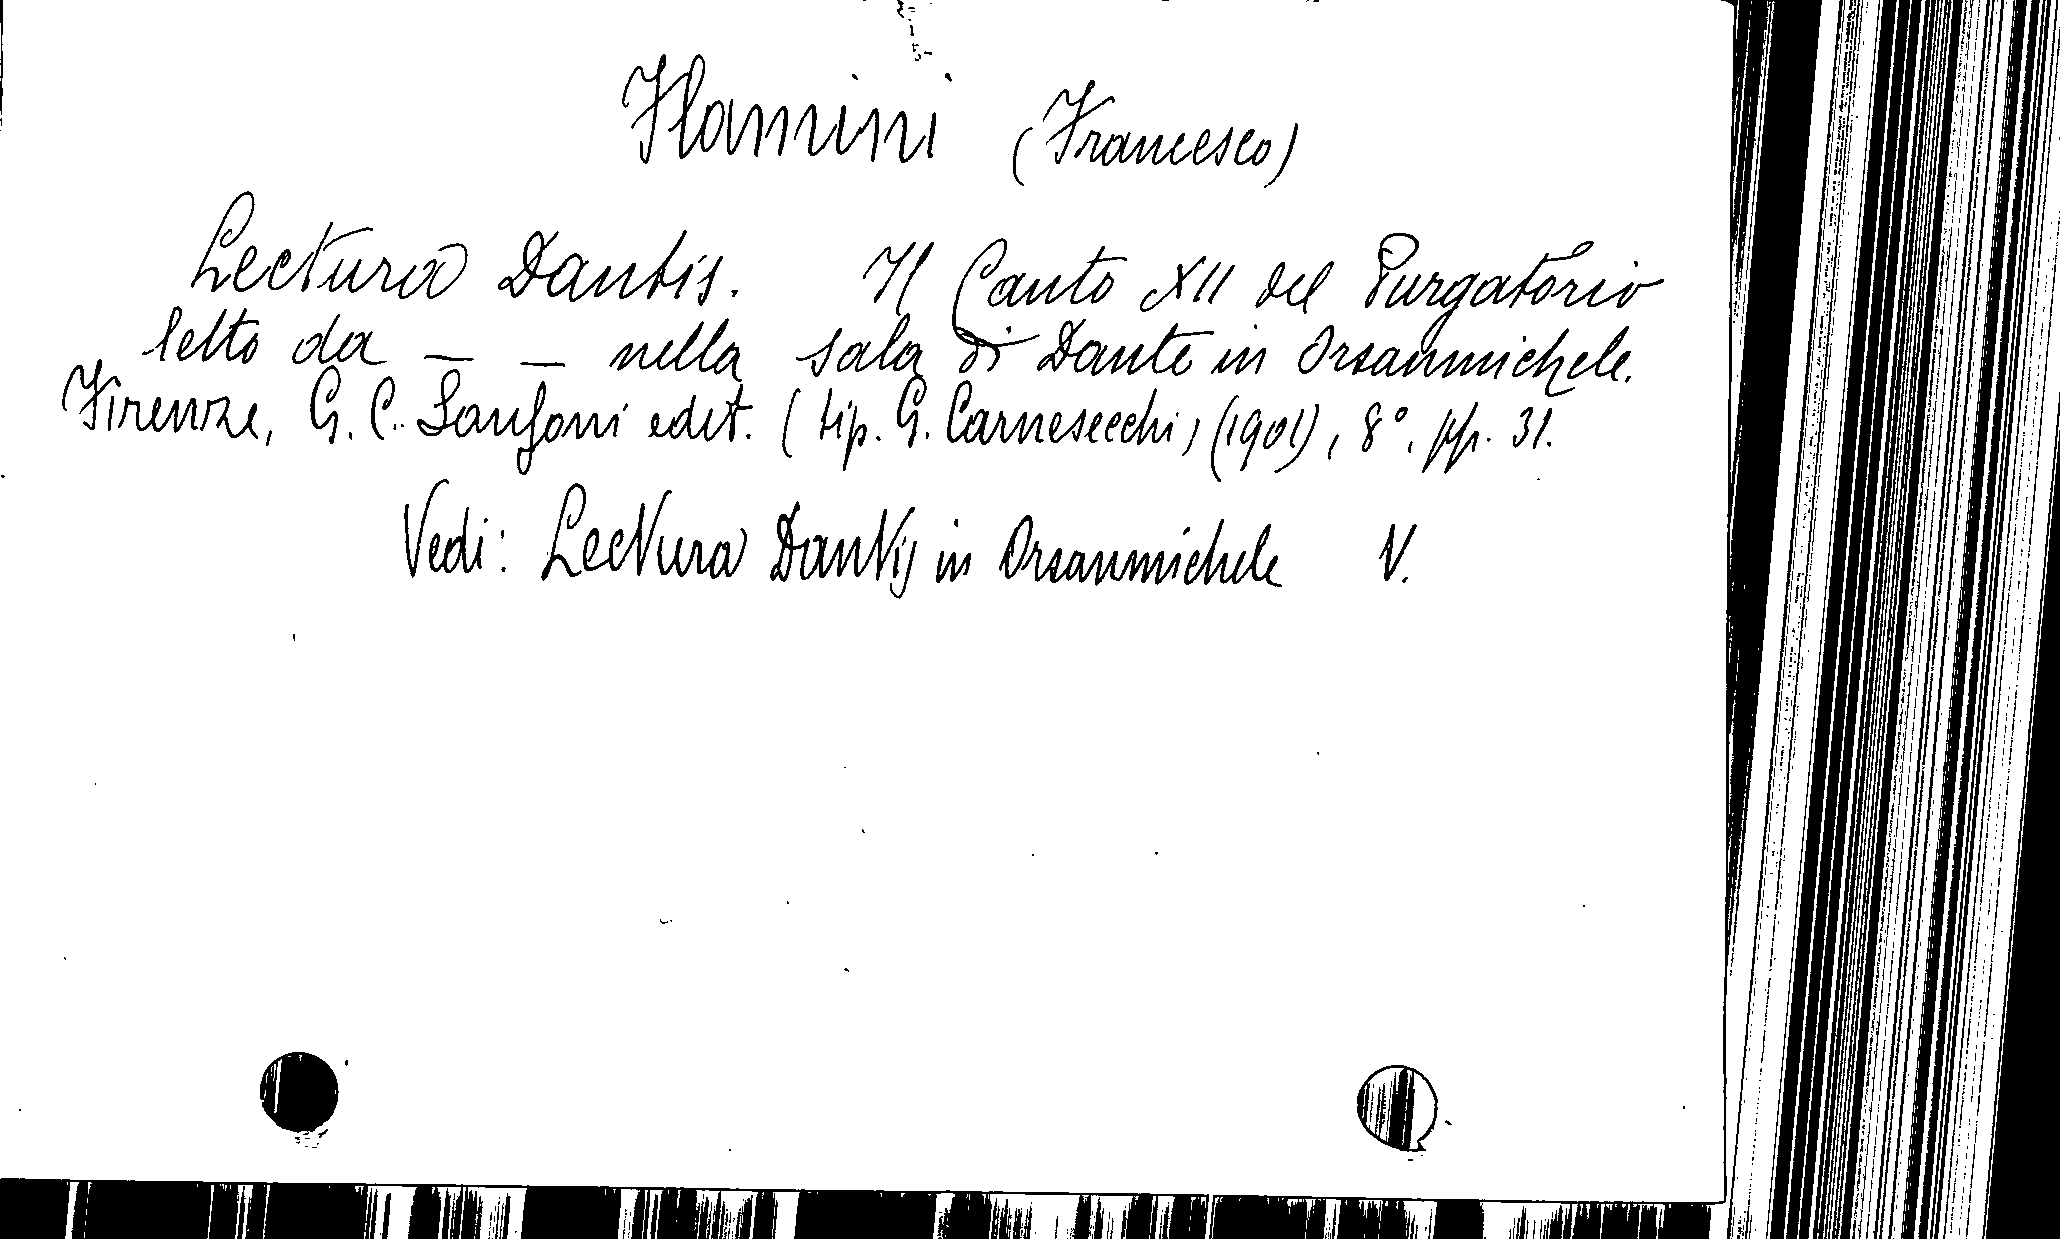 Flamini (Francesco)
Lectura Dantis. Il Canto XII del Purgatorio
letto da _ _ nella sala di Dante in Orsanmichele.
Firenze, G. C. Sansoni edit. (tip. G. Carnesecchi, (1901), 8°, pp. 31.
Vedi: Lectura Dantis in Orsanmichele V.